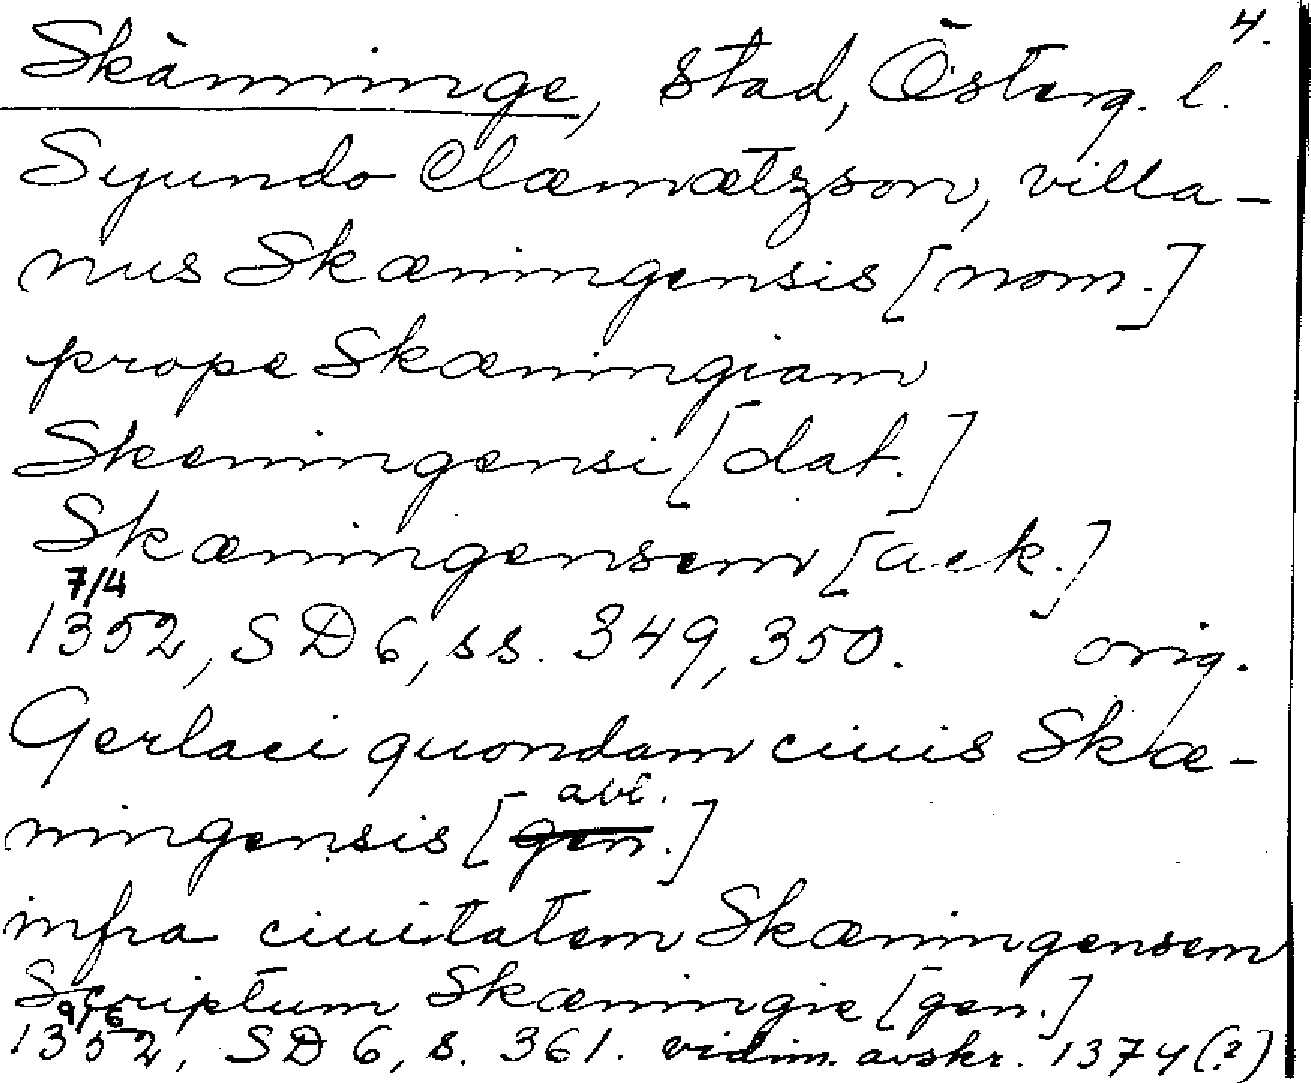 4.
Skänninge, stad, Österg. l.
Syundo Clæmætzson, villa-
nus Skæningensis [nom.]
prope Skæningiam
Skeningensi [dat.]
Skæningensem [ack.]
7/4
1352, SD 6, ss. 349, 350. orig.
Gerlaci quondam ciuis Skæ-
abl.
ningensis [gen.]
infra ciuitatem Skæningensem
Scriptum Skæningie [gen.]
9/6
1352, SD 6, s. 361. vidim. avskr. 1374 (?)